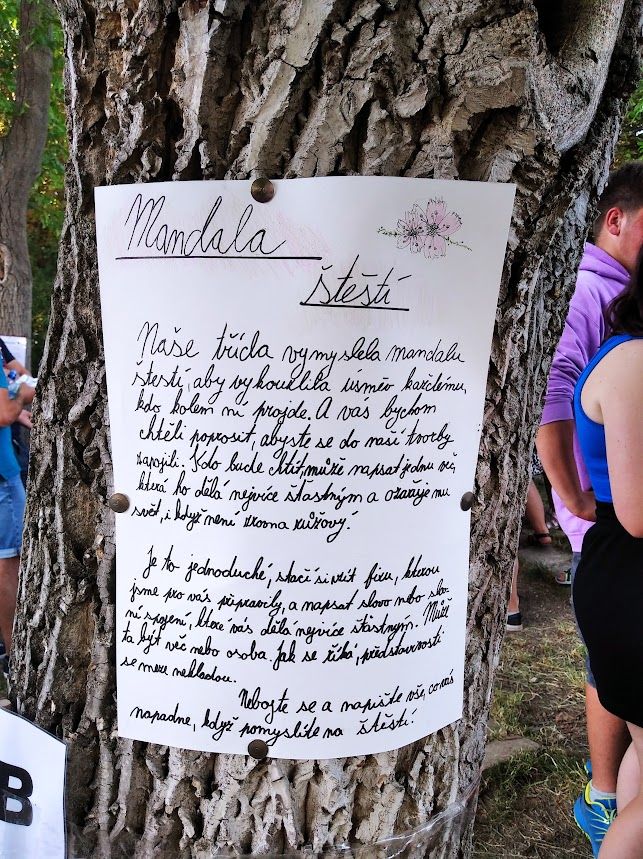 Mandala
štěstí
Naše třída vymyslela mandalu
štestí, aby vykouzlila úsměv každému,
kdo kolem ní projde. A vás bychom
chtěli poprosit, abyste se do naší tvorby
zapojili. Kdo bude chtít, může napsat jednu věc,
která ho dělá nejvíce šťastným a ozařuje mu
svět, i když není zrovna růžový!
Je to jednoduché, stačí si vzít fixu, kterou
jsme pro vás připravily, a napsat slovo nebo slov-
ní spojení, které vás dělá nejvíce šťastným. Může
to být věc nebo osoba. Jak se říká, představivosti
se meze nekladou.
Nebojte se a napište vše, co vás
napadne, když pomyslíte na štěstí!
B